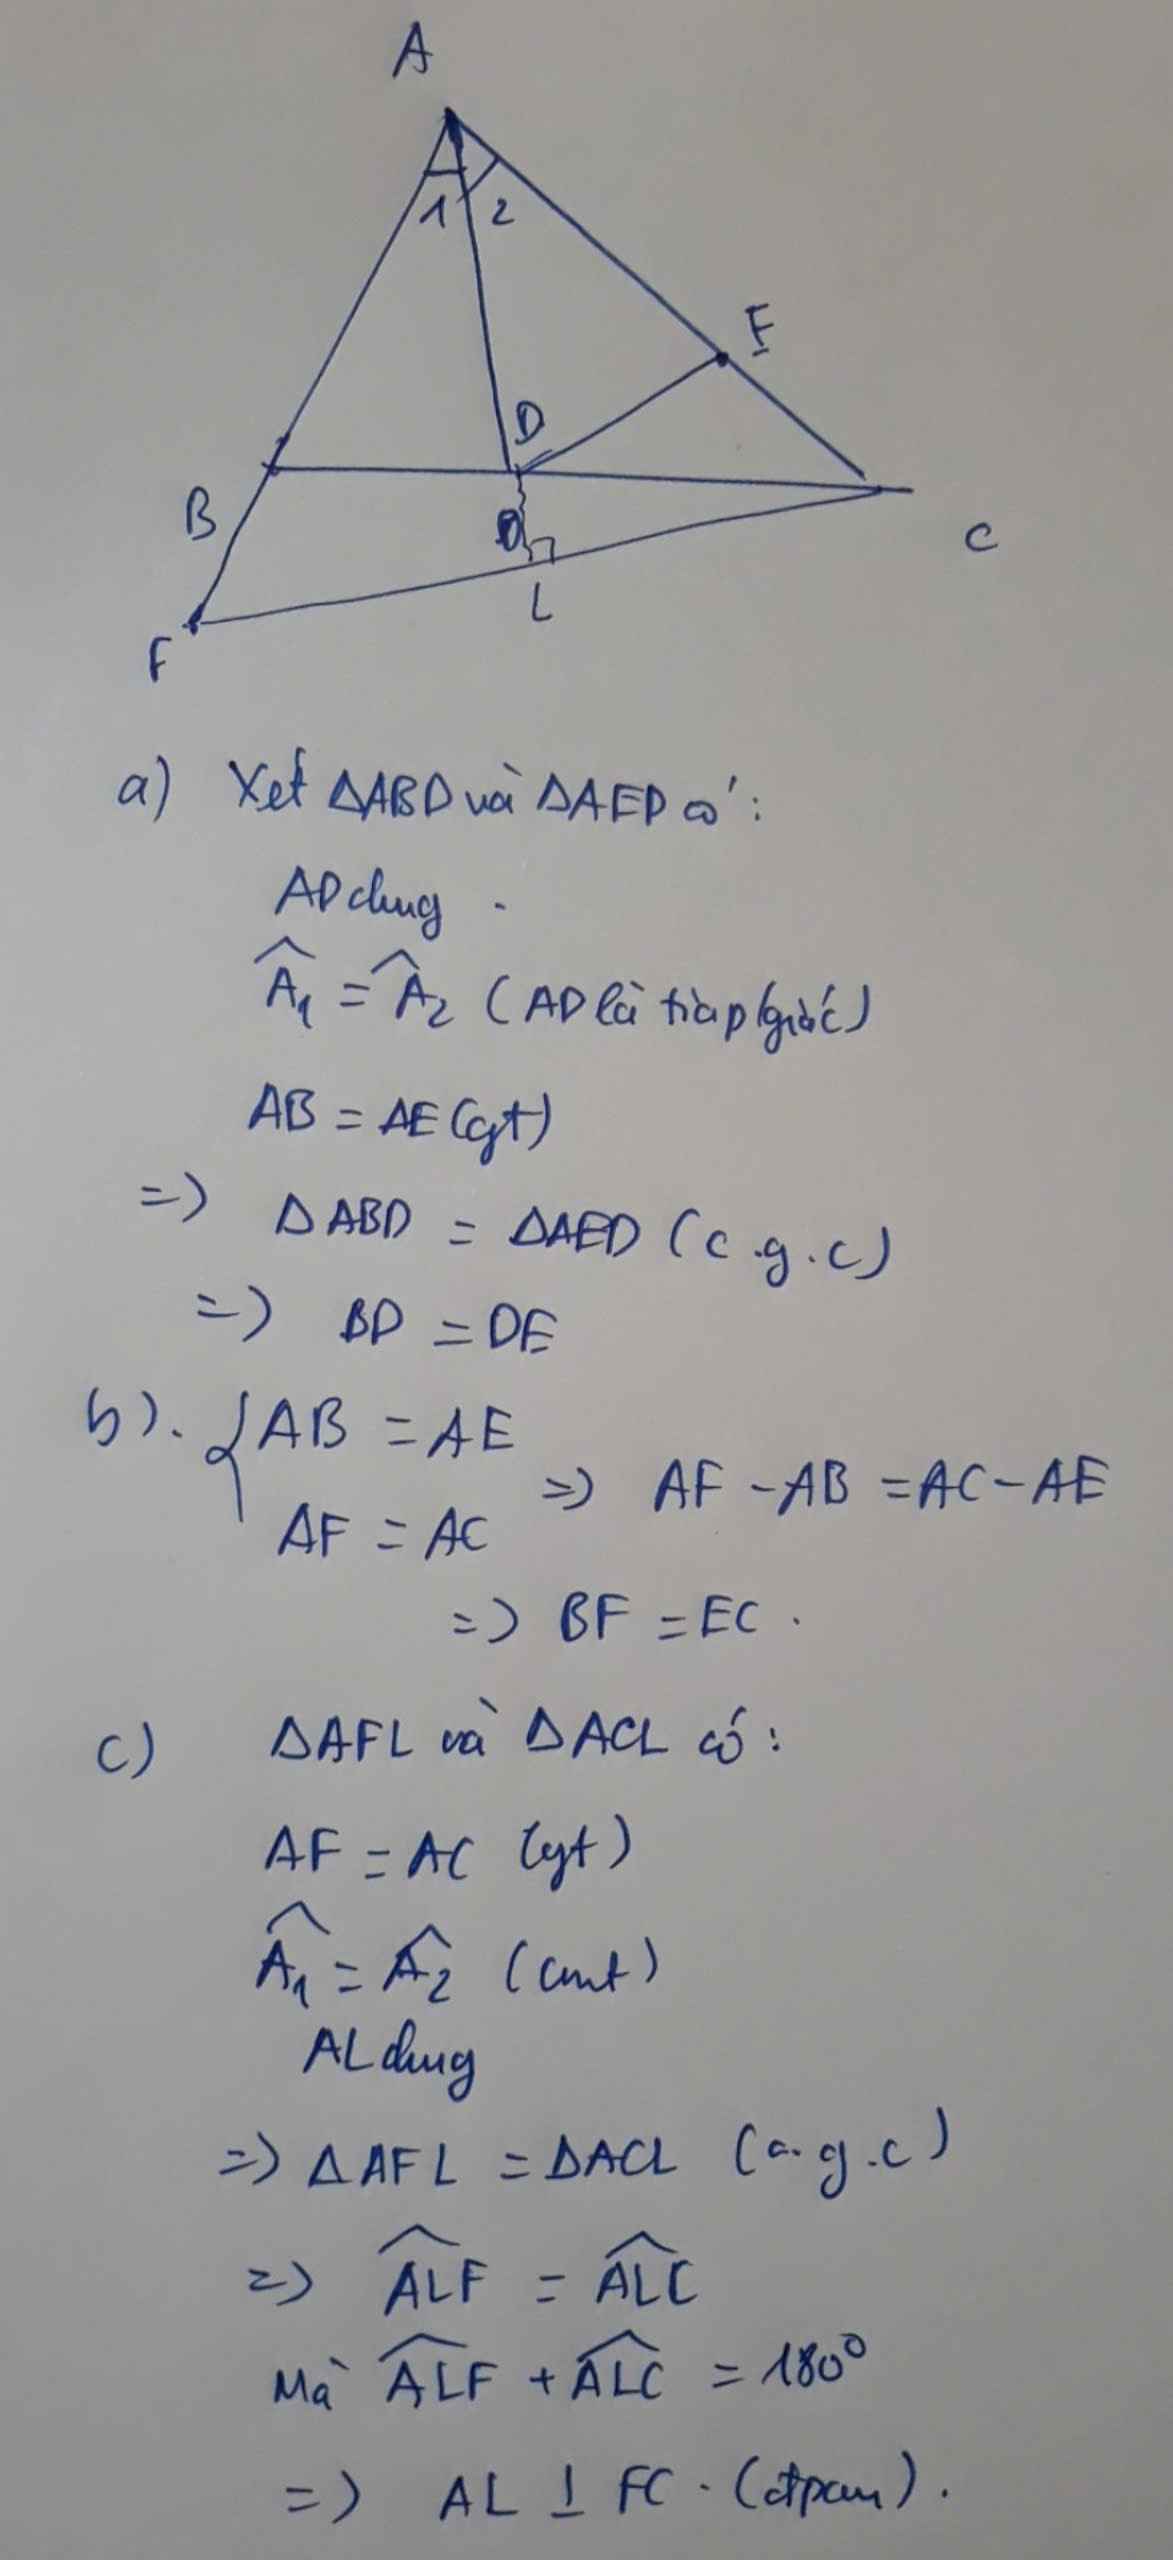 A
1 2
E
D
B
C
L
F
a) Xét ΔABD và ΔAED có:
AD chung.
Â₁ = Â₂ (AD là tia p/giác)
AB = AE (gt)
=> ΔABD = ΔAED (c.g.c)
=> BD = DE
b). { AB = AE
AF = AC => AF - AB = AC - AE
=> BF = EC.
c) ΔAFL và ΔACL có:
AF = AC (gt)
Â₁ = Â₂ (cmt)
AL chung
=> ΔAFL = ΔACL (c.g.c)
=> \widehat{ALF} = \widehat{ALC}
Mà \widehat{ALF} + \widehat{ALC} = 180⁰
=> AL ⊥ FC. (đpcm).